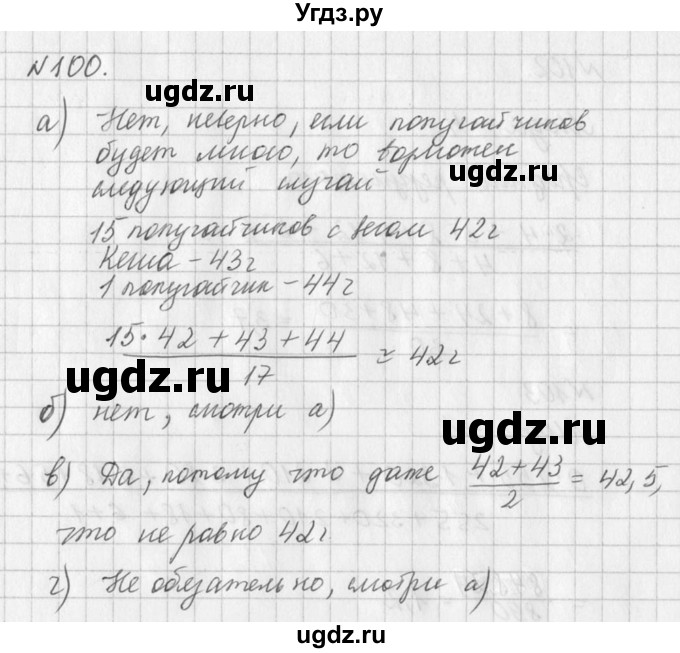 Угдз.ру
№100.
ugdz.ru
а) Нет, неверно, если попугайчиков
будет много, то возможен
ugdz.ru
следующий случай
15 попугайчиков с весом 42г
Кеша - 43г
1 попугайчик - 44г
15·42 + 43 + 44
≈ 42г
17
ugdz.ru
б) нет, смотри а)
ugdz.ru
в) Да, потому что даже 42+43 = 42,5,
2
что не равно 42г
г) Не обязательно, смотри а)
ugdz.ru
ugdz.ru